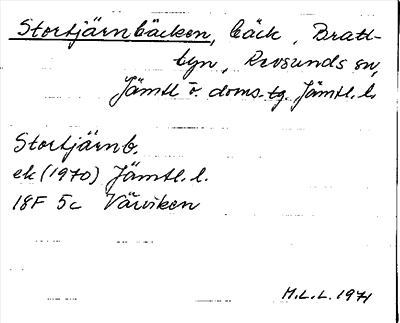 Stortjärnbäcken, bäck, Bratt-
byn, Revsunds sn,
Jämtl ö. doms. tg. Jämtl. l.
Stortjärnb.
ek (1970) Jämtl. l.
18F 5c Väviken
M.L.L. 1971